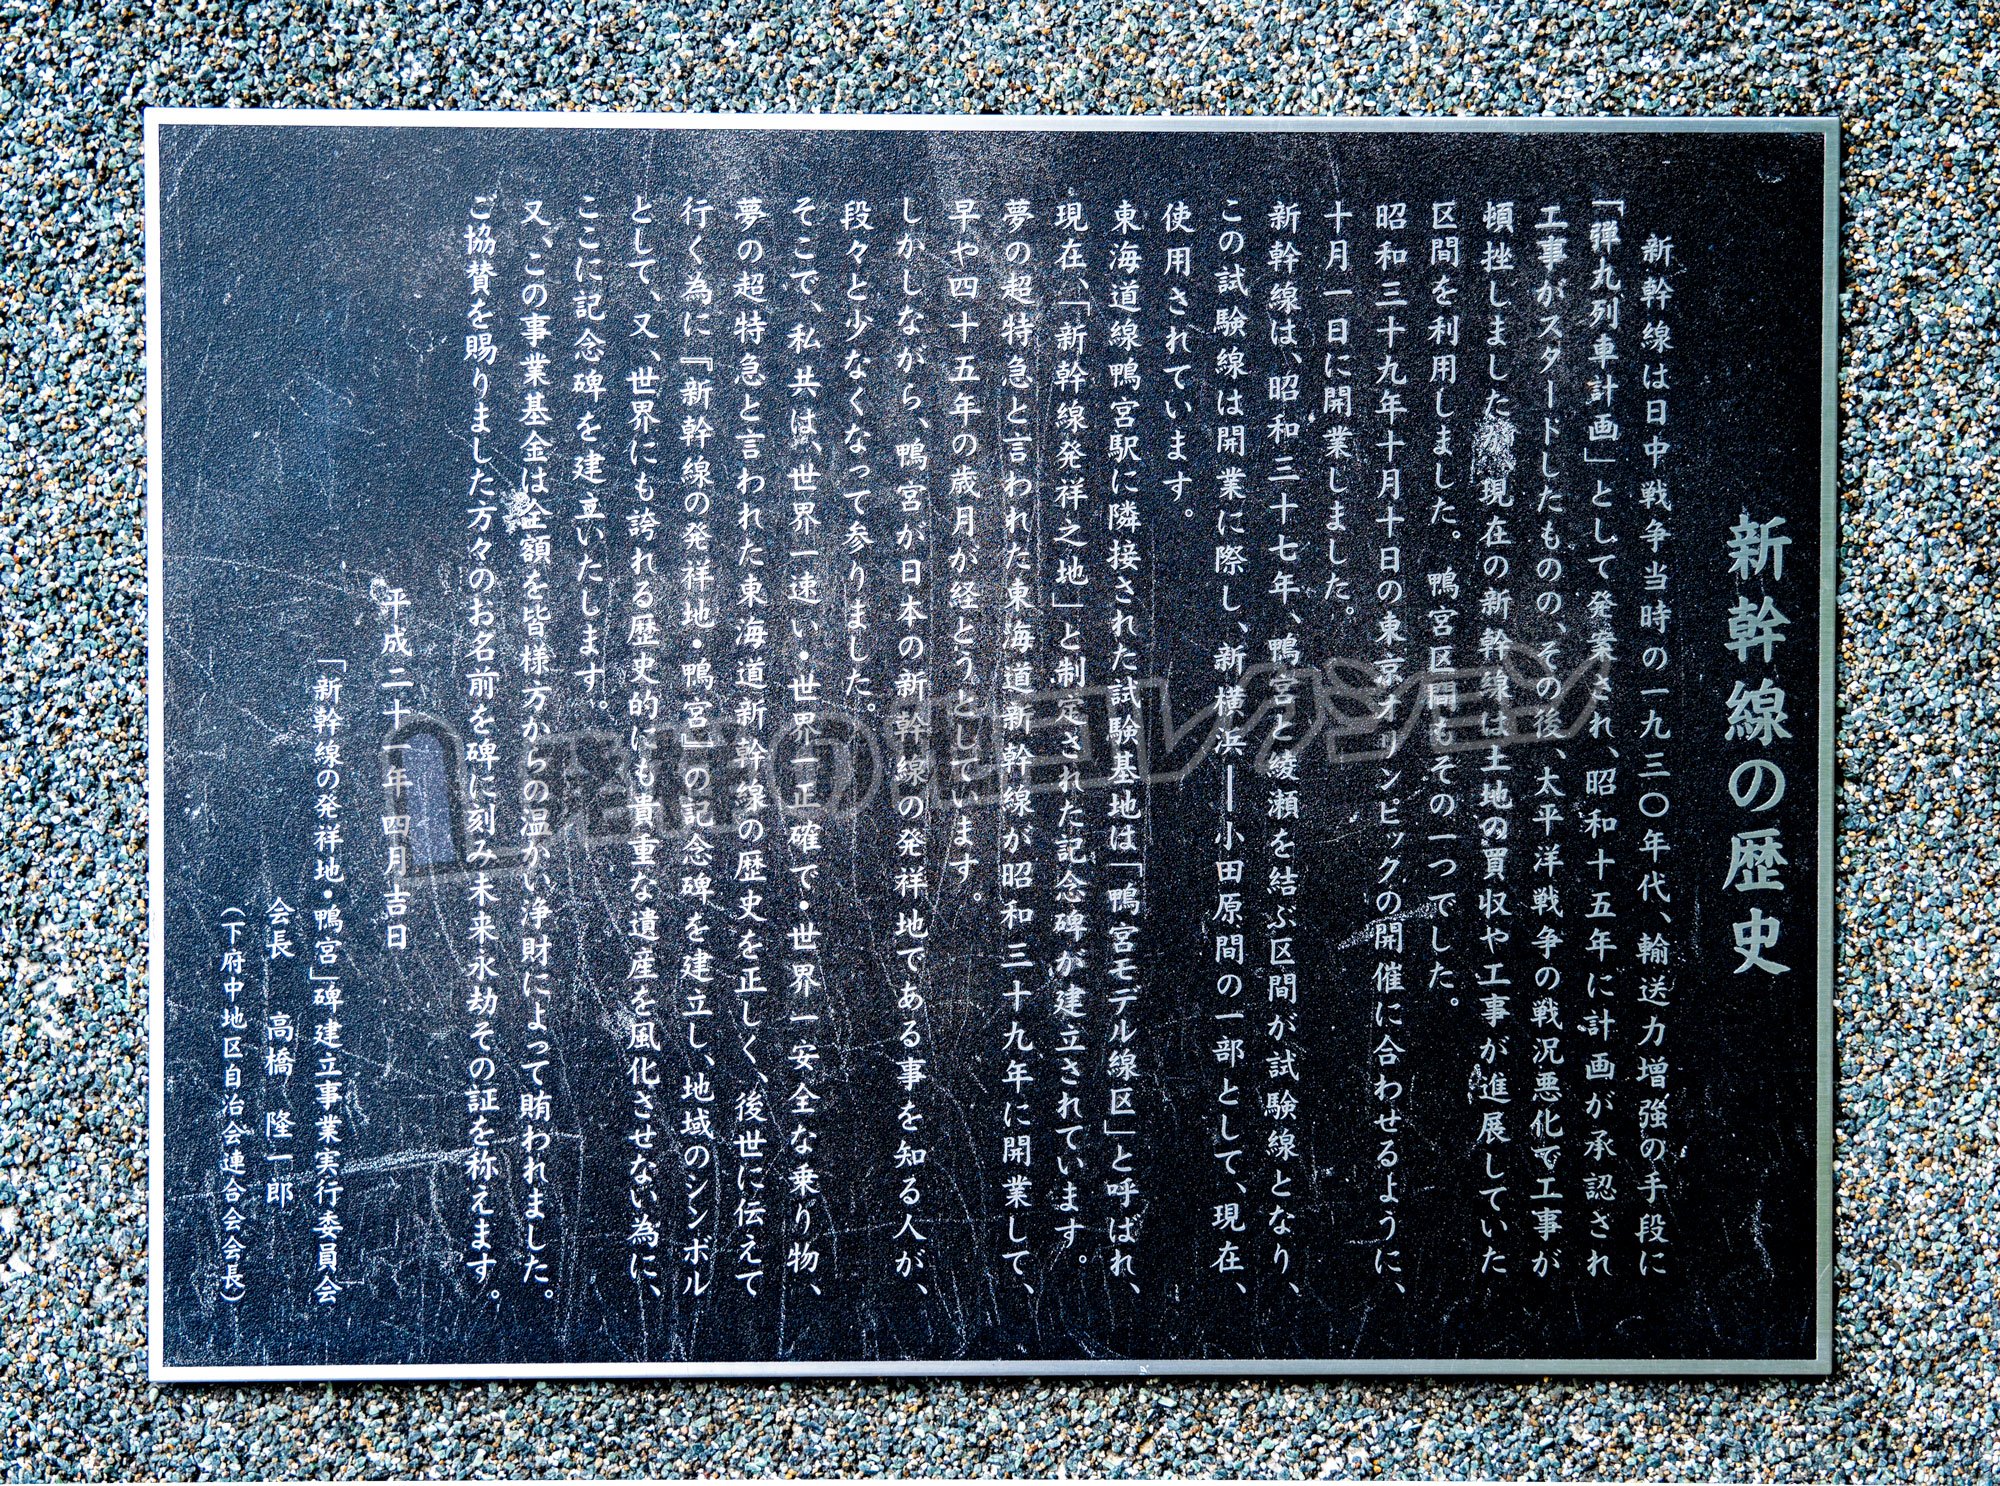 新幹線の歴史
新幹線は日中戦争当時の一九三〇年代、輸送力増強の手段に
「弾丸列車計画」として発案され、昭和十五年に計画が承認され
工事がスタードしたものの、その後、太平洋戦争の戦況悪化で工事が
頓挫しましたが現在の新幹線は土地の買収や工事が進展していた
区間を利用しました。鴨宮区間もその一つでした。
昭和三十九年十月十日の東京オリンピックの開催に合わせるように、
十月一日に開業しました。
新幹線は、昭和三十七年、鴨宮と綾瀬を結ぶ区間が試験線となり、
この試験線は開業に際し、新横浜―小田原間の一部として、現在、
使用されています。
東海道線鴨宮駅に隣接された試験基地は「鴨宮モデル線区」と呼ばれ、
現在、「新幹線発祥之地」と制定された記念碑が建立されています。
夢の超特急と言われた東海道新幹線が昭和三十九年に開業して、
早や四十五年の歳月が経とうとしています。
しかしながら、鴨宮が日本の新幹線の発祥地である事を知る人が、
段々と少なくなって参りました。
そこで、私共は、世界一速い・世界一正確で・世界一安全な乗り物、
夢の超特急と言われた東海道新幹線の歴史を正しく、後世に伝えて
行く為に『新幹線の発祥地・鴨宮』の記念碑を建立し、地域のシンボル
として、又、世界にも誇れる歴史的にも貴重な遺産を風化させない為に、
ここに記念碑を建立いたします。
又、この事業基金は全額を皆様方からの温かい浄財によって賄われました。
ご協賛を賜りました方々のお名前を碑に刻み未来永劫その証を称えます。
平成二十一年四月吉日
「新幹線の発祥地・鴨宮」碑建立事業実行委員会
会長 高橋 隆一郎
（下府中地区自治会連合会会長）